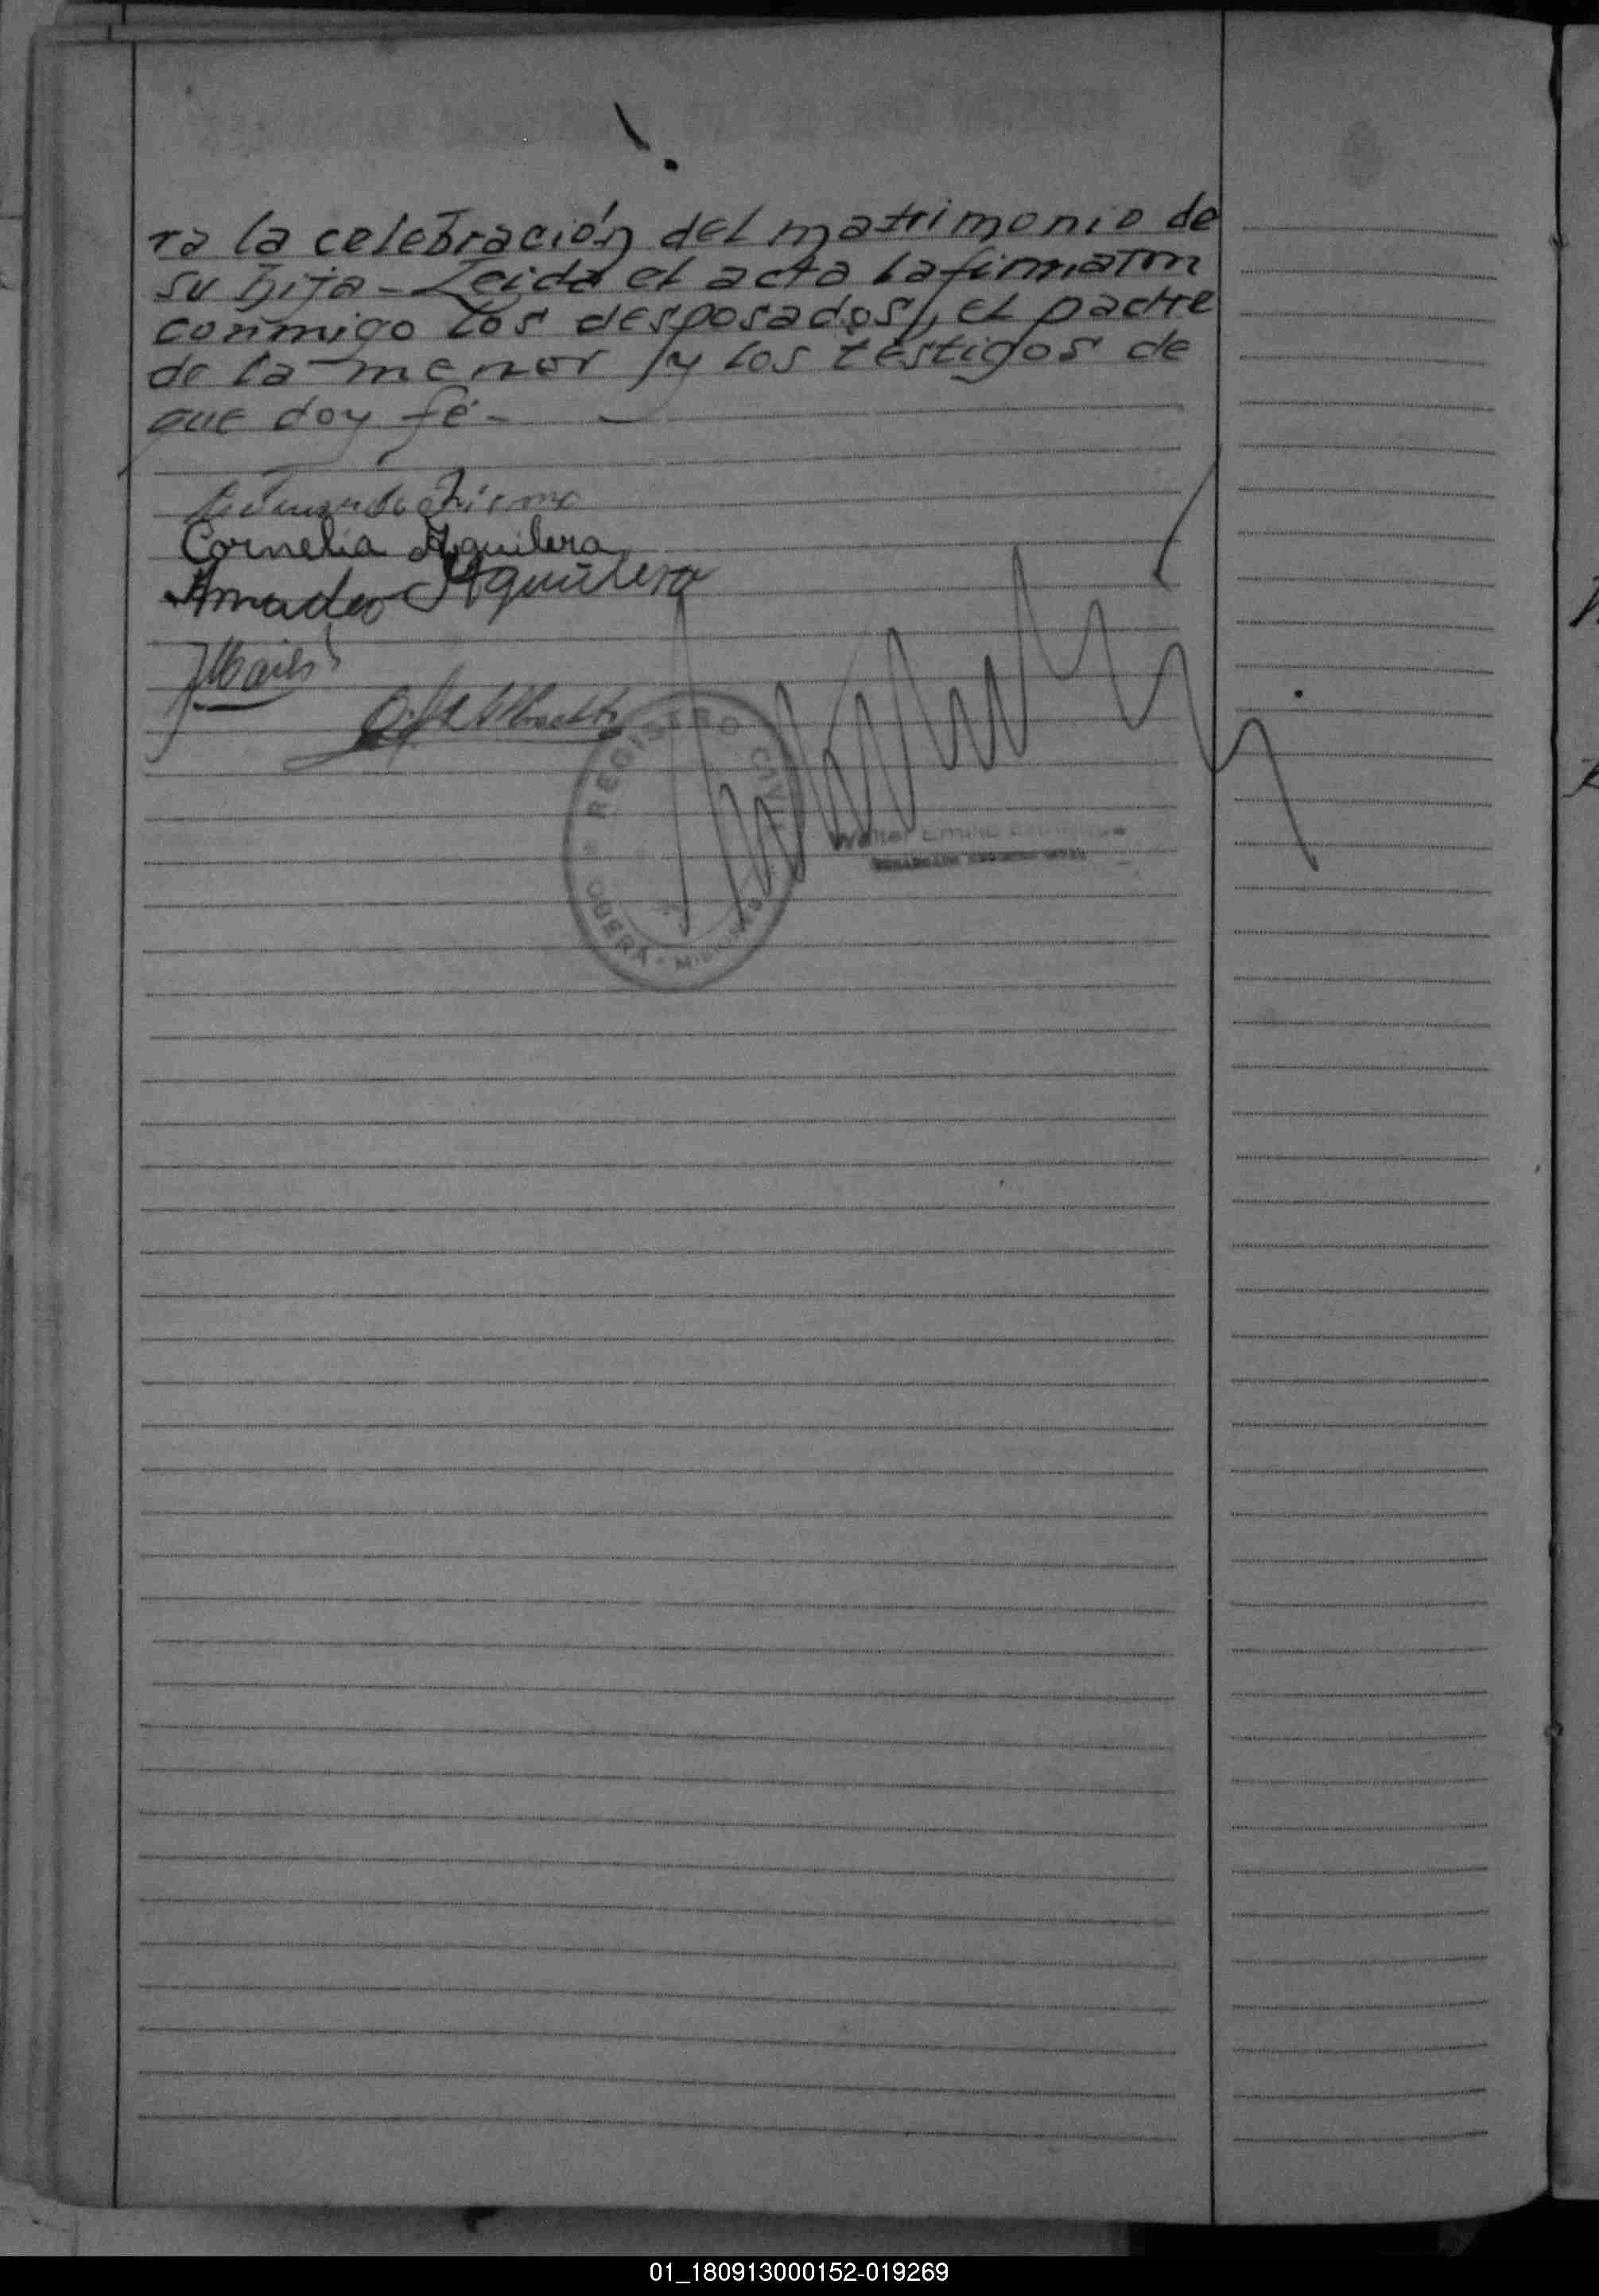 ra la celebración del matrimonio de
su hija - Leida el acta la firmaron
conmigo los desposados, el padre
de la menor y los testigos de
que doy fé -
Cornelia Aguilera
Amadeo Aguilera
REGISTRO CIVIL
OBERA - MISIONES
Walter Emilio
01_180913000152-019269